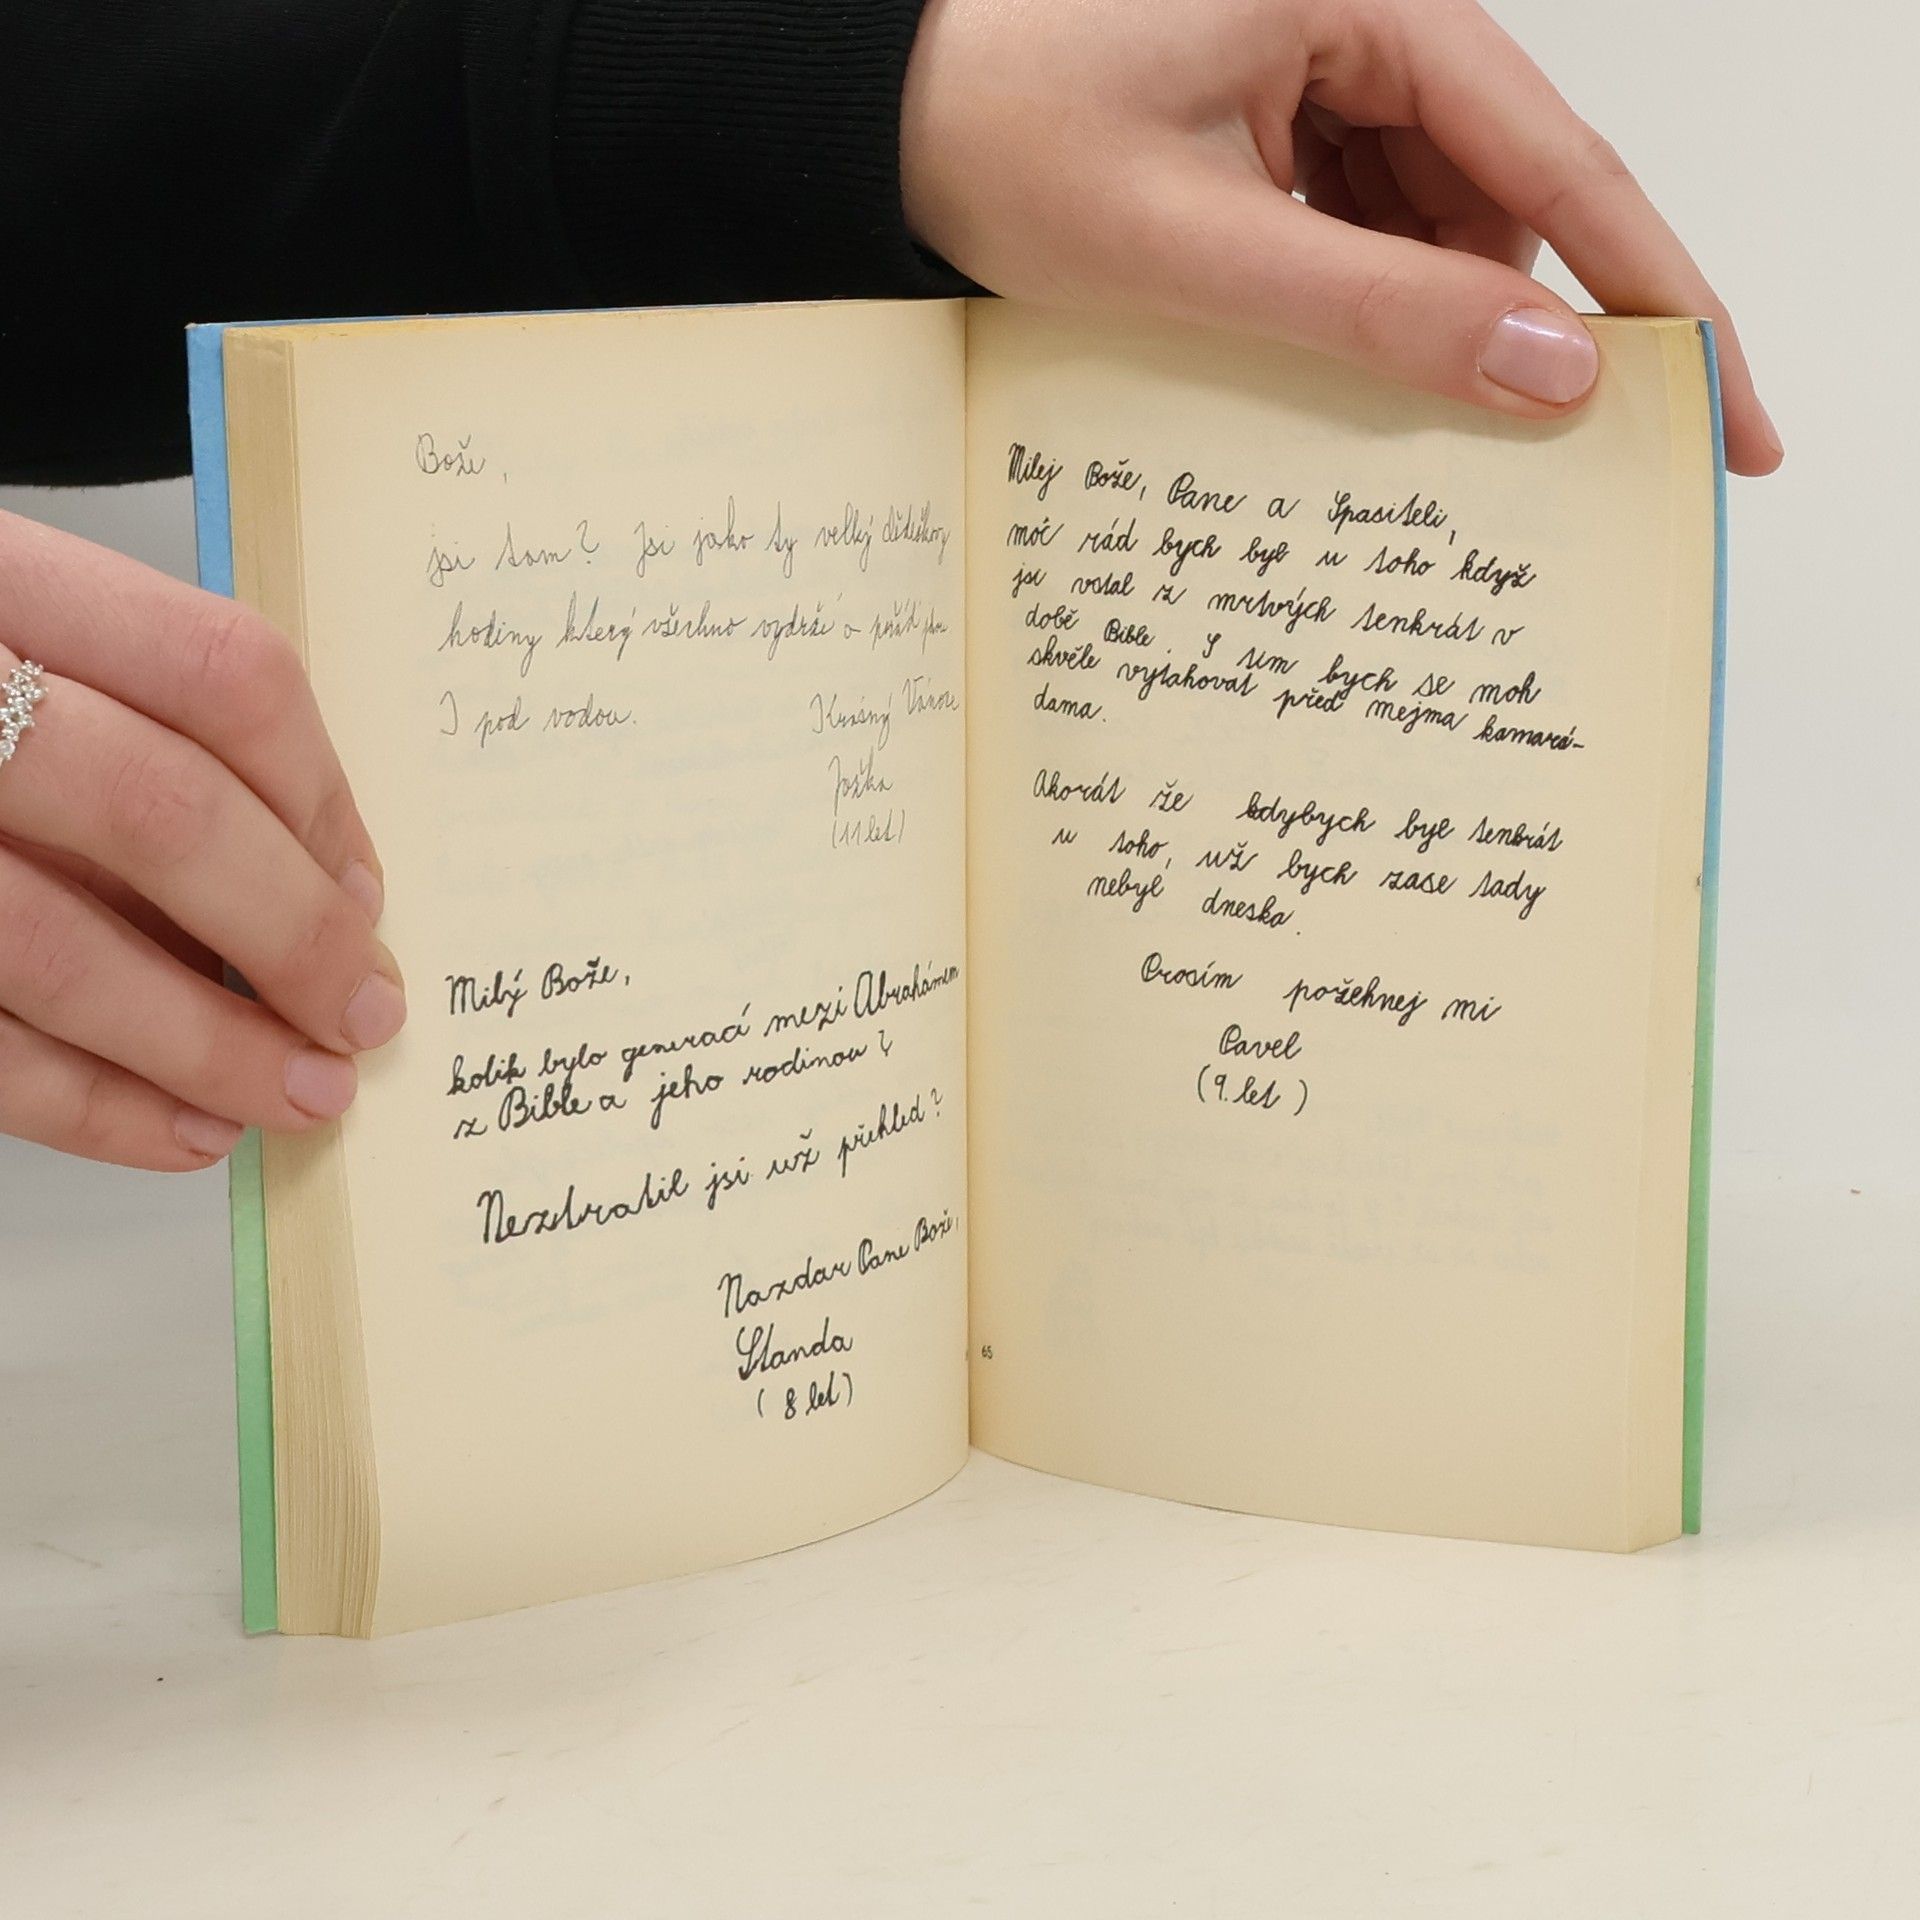 Bože,
jsi tam? Jsi jako ty velký dědečkovy
hodiny který všechno vydrží a pořád jdou
I pod vodou.
Krásný Vánoce
Joška
(11 let)
Milý Bože,
kolik bylo generací mezi Abrahámem
z Bible a jeho rodinou?
Neztratil jsi už přehled?
Nazdar Pane Bože,
Standa
(8 let)
Milej Bože, Pane a Spasiteli,
móc rád bych byl u toho když
jsi vstal z mrtvých tenkrát v
době Bible. S tím bych se moh
skvěle vytahovat před mejma kamará-
dama.
Akorát že kdybych byl tenkrát
u toho, už bych zase tady
nebyl dneska.
Prosím požehnej mi
Pavel
(9. let)
65